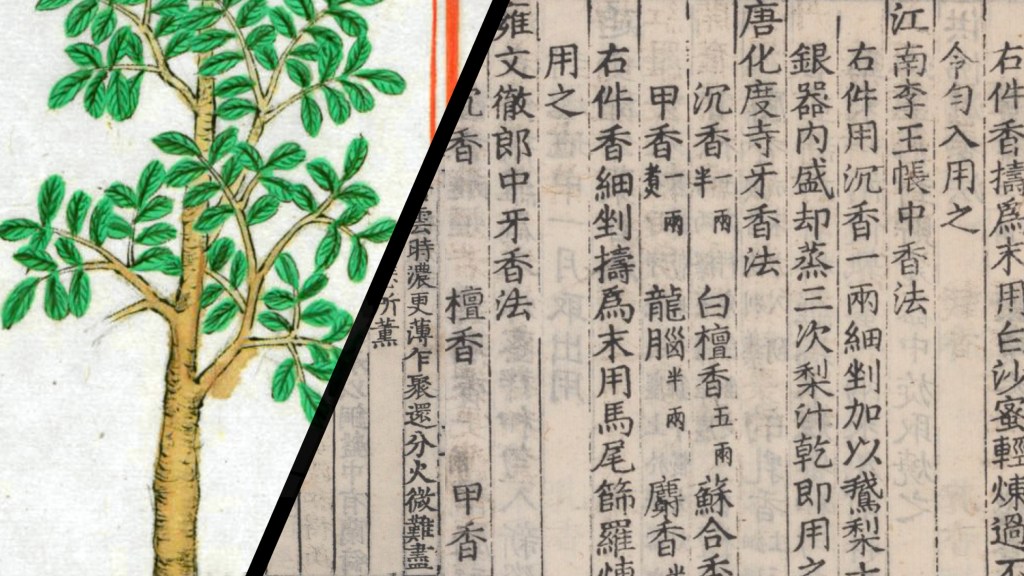 右件香擣爲末用白沙蜜輕煉過不
令勻入用之
江南李王帳中香法
右件用沉香一兩細剉加以鵞梨十
銀器內盛却蒸三次梨汁乾即用之
唐化度寺牙香法
沉香一兩半 白檀香五兩 蘇合香
甲香一兩煑 龍腦半兩 麝香半
右件香細剉擣爲末用馬尾篩羅煉
用之
雍文徹郎中牙香法
沉香 檀香 甲香
雲時濃更薄乍聚還分火微難盡
所薰